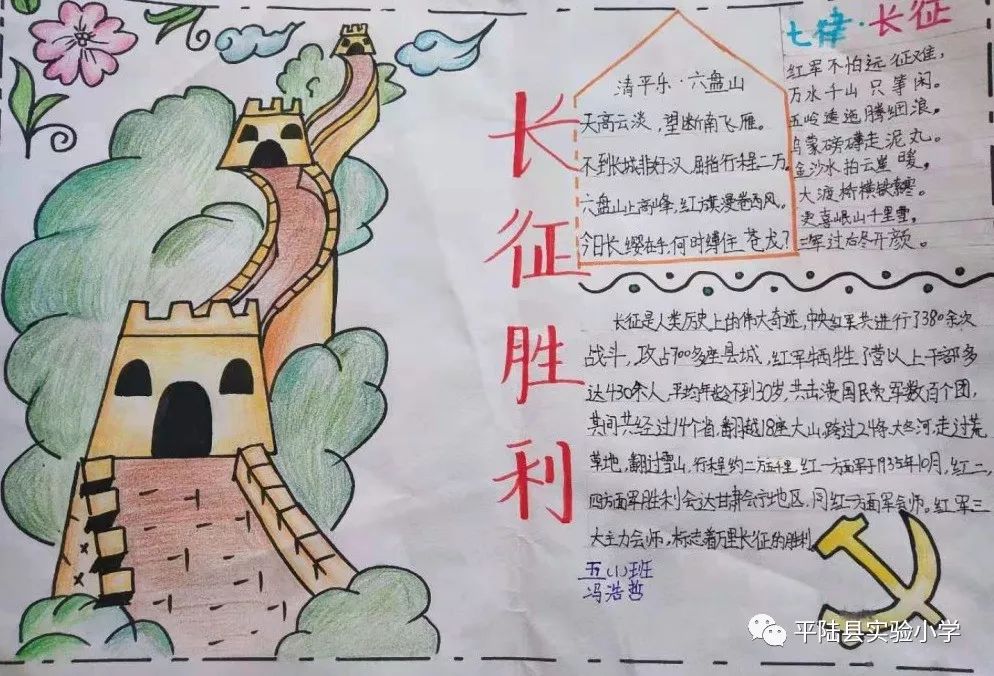 长征胜利
清平乐·六盘山
天高云淡，望断南飞雁。
不到长城非好汉，屈指行程二万。
六盘山上高峰，红旗漫卷西风。
今日长缨在手，何时缚住苍龙？
七律·长征
红军不怕远征难，
万水千山只等闲。
五岭逶迤腾细浪。
乌蒙磅礴走泥丸。
金沙水拍云崖暖，
大渡桥横铁索寒。
更喜岷山千里雪，
三军过后尽开颜。
长征是人类历史上的伟大奇迹，中央红军共进行了380余次
战斗，攻占700多座县城，红军牺牲了营以上干部多
达430余人，平均年龄不到30岁，共击溃国民党军数百个团，
其间共经过14个省，翻越18座大山，跨过24条大河，走过荒
草地，翻过雪山，行程约二万五千里，红一方面军于1935年10月，红二，
四方面军胜利会达甘肃会宁地区，同红一方面军会师。红军三
大主力会师，标志着万里长征的胜利
五(1)班
冯浩哲
平陆县实验小学